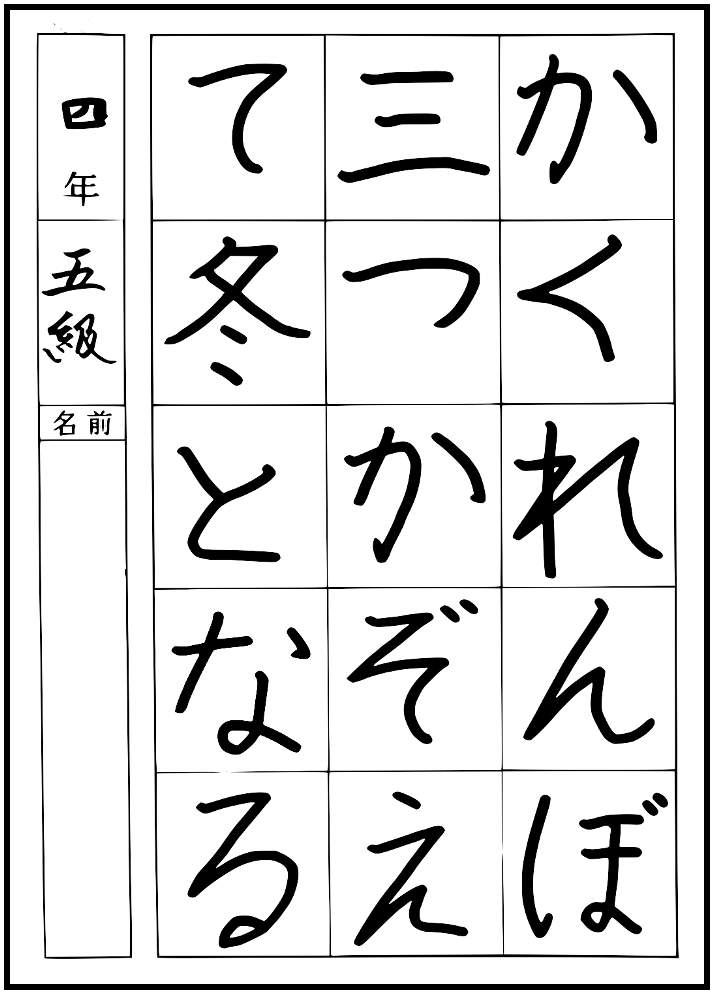 かくれんぼ
三つかぞえ
て冬となる
四年
五級
名前